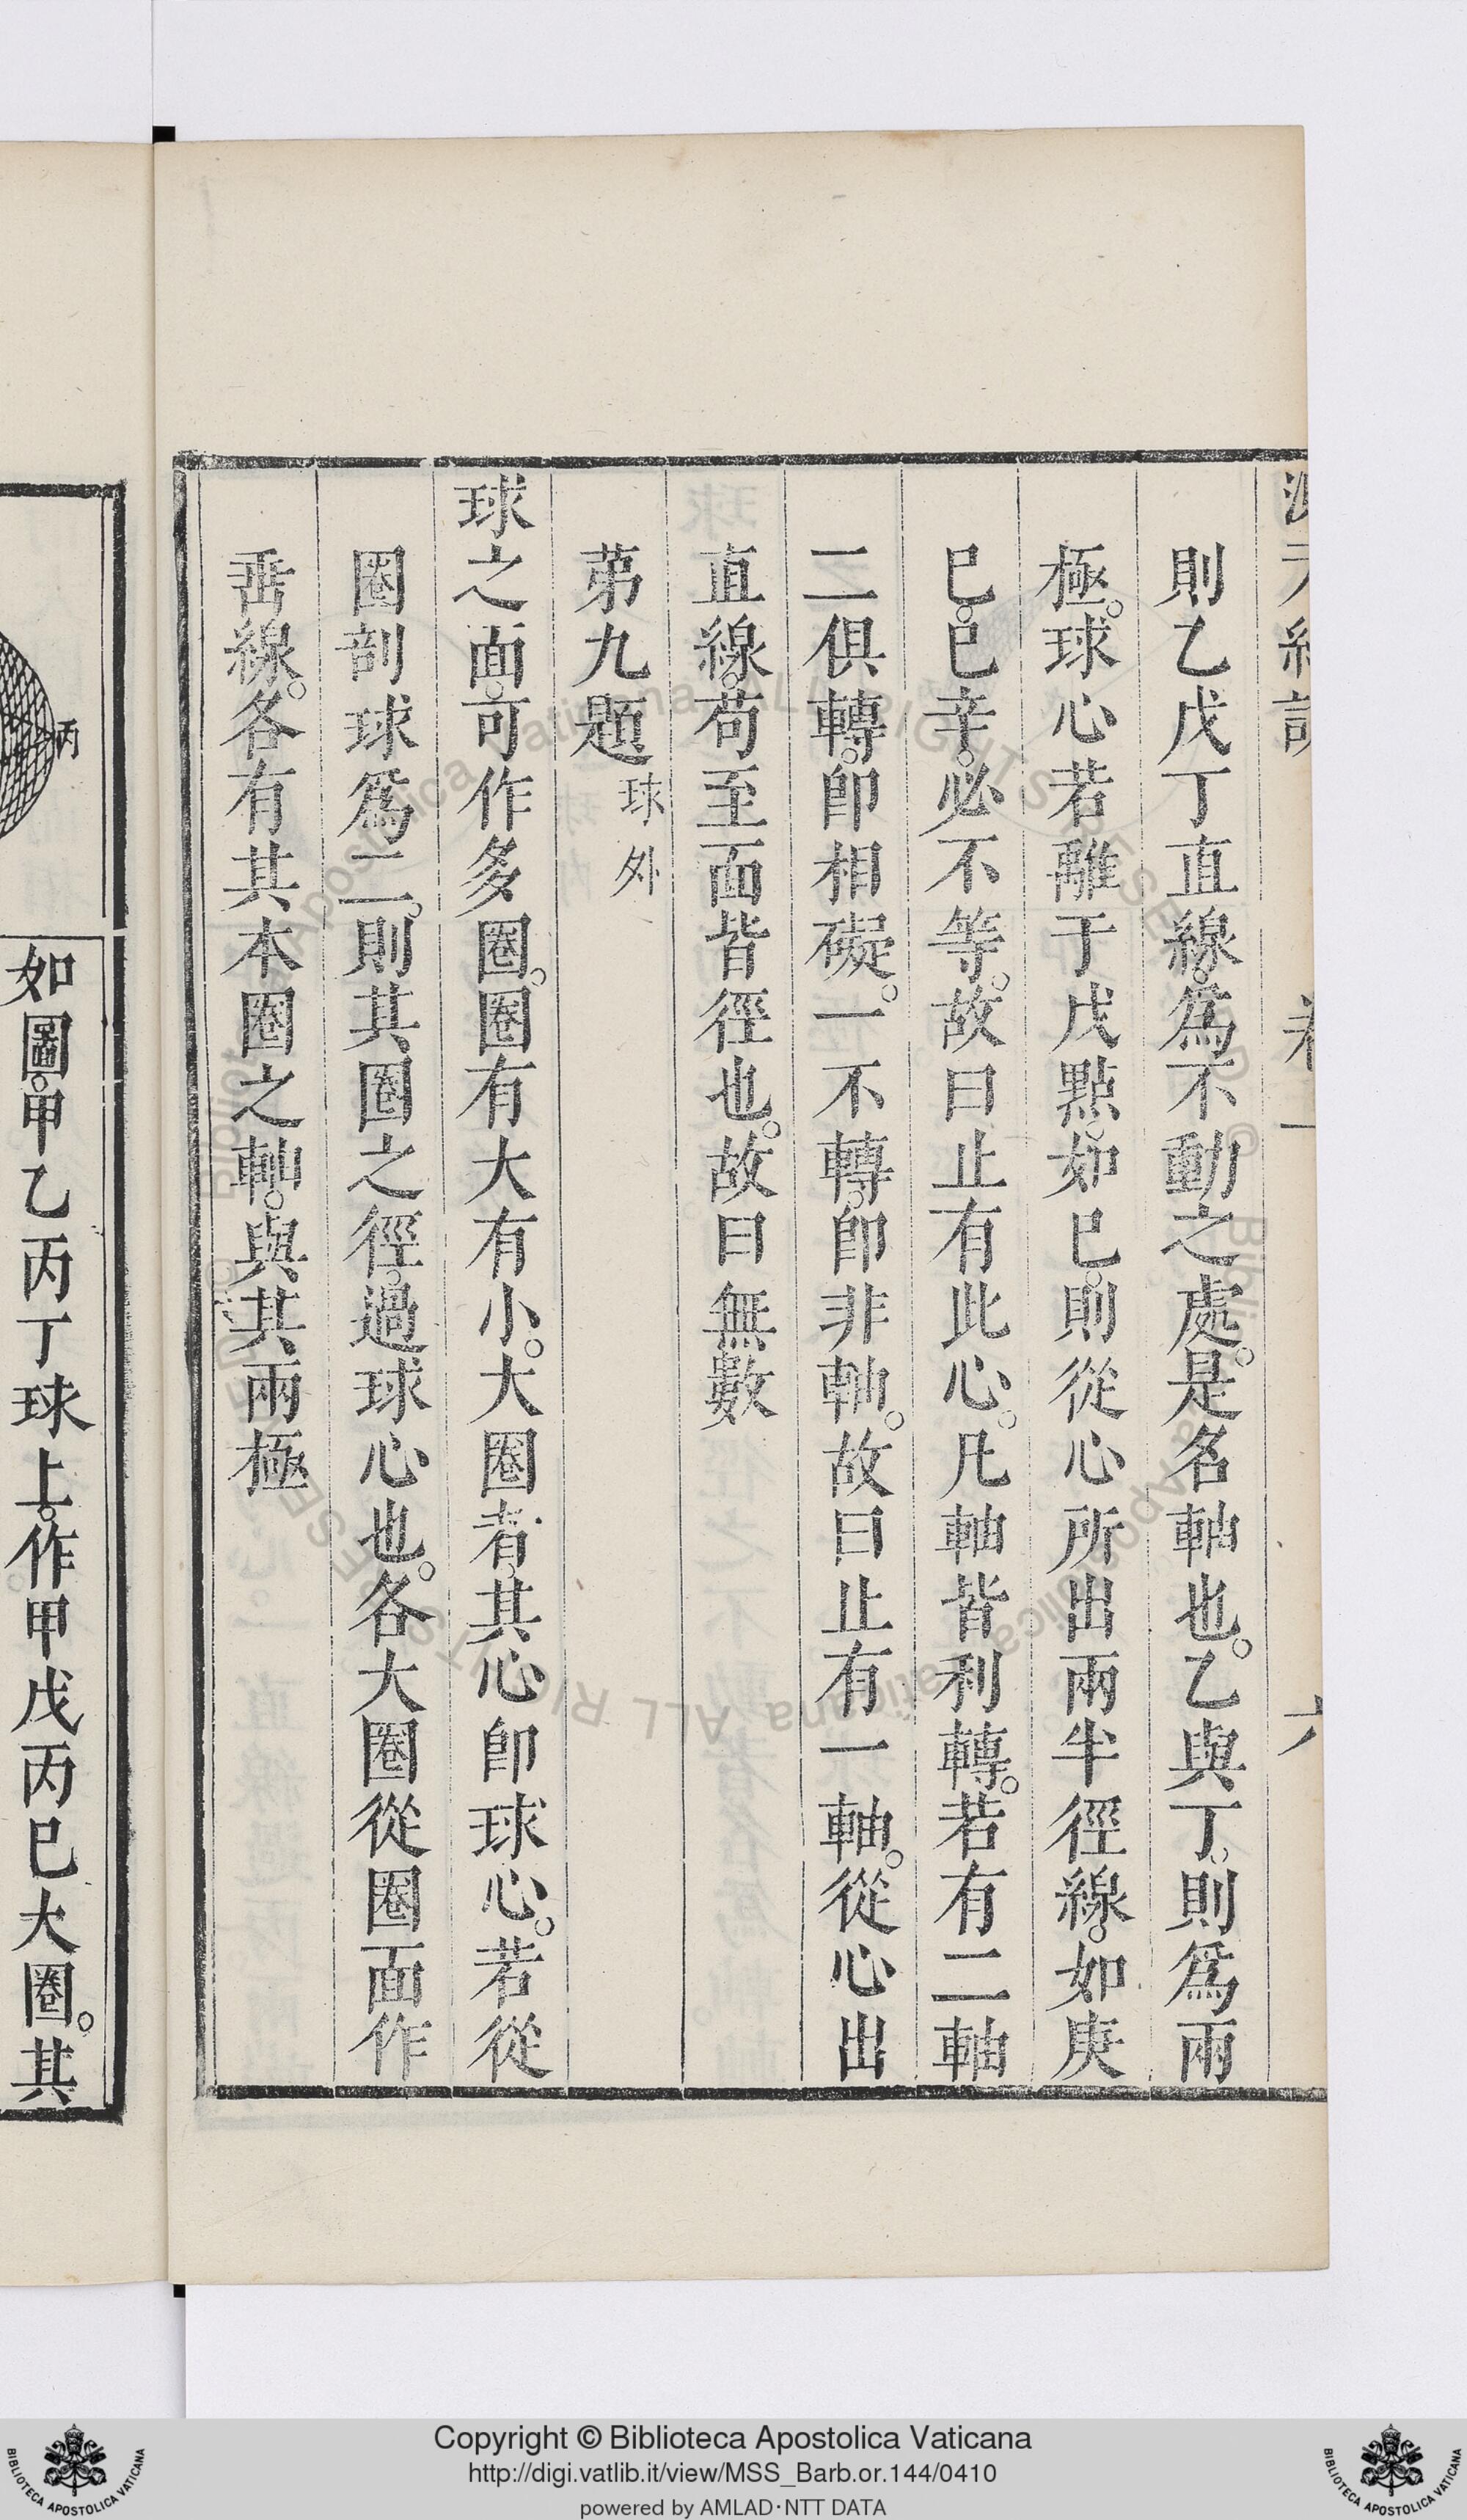 則乙戊丁直線。爲不動之處。是名軸也。乙與丁。則爲兩
極。球心若離于戊點。如巳。則從心所出兩半徑線。如庚
巳。巳辛。必不等。故曰止有此心。凡軸皆利轉。若有二軸
二俱轉。卽相礙。一不轉。卽非軸。故曰止有一軸。從心出
直線。苟至面皆徑也。故曰無數
苐九題 球外
球之面。可作多圈。圈有大有小。大圈者。其心卽球心。若從
圈剖球爲二。則其圈之徑。過球心也。各大圈從圈面作
垂線。各有其本圈之軸。與其兩極
丙
如圖。甲乙丙丁球上。作甲戊丙巳大圈。其
Copyright © Biblioteca Apostolica Vaticana
http://digi.vatlib.it/view/MSS_Barb.or.144/0410
powered by AMLAD·NTT DATA
BIBLIOTECA APOSTOLICA VATICANA
BIBLIOTECA APOSTOLICA VATICANA